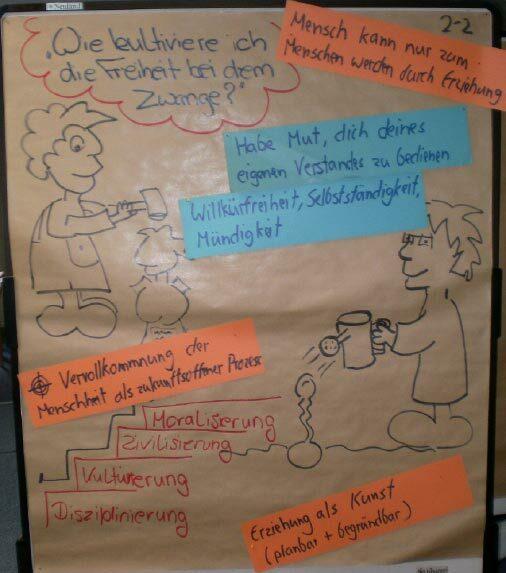 Neuland
2-2
"Wie kultiviere ich
die Freiheit bei dem
Zwange?"
Mensch kann nur zum
Menschen werden durch Erziehung
Habe Mut, dich deines
eigenen Verstandes zu bedienen
Willkürfreiheit, Selbstständigkeit,
Mündigkeit
Vervollkommnung der
Menschheit als zukunftsoffener Prozess
Moralisierung
Zivilisierung
Kultivierung
Disziplinierung
Erziehung als Kunst
(planbar + begründbar)